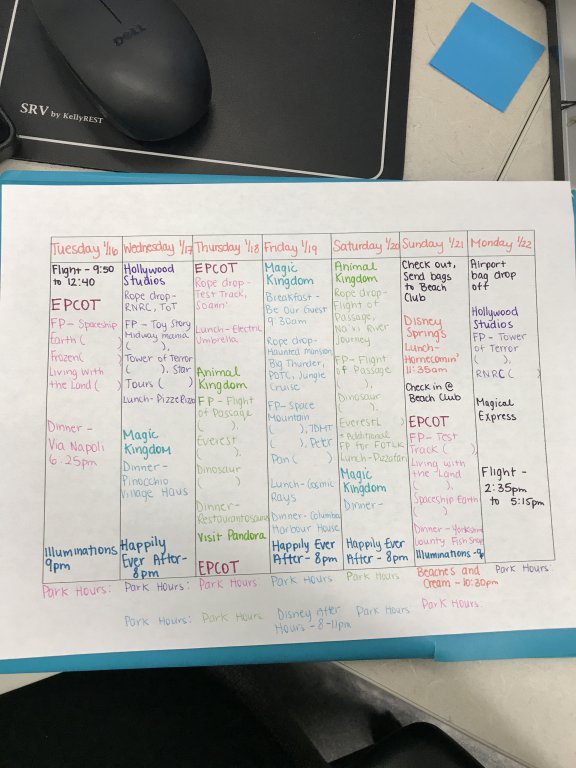 DELL
SRV by KellyREST
Tuesday 1/16
Flight - 9:50
to 12:40
EPCOT
FP - Spaceship
Earth ( ),
Frozen ( )
Living with
the Land ( )
Dinner -
Via Napoli
6:25pm
Illuminations
9pm
Park Hours:
Wednesday 1/17
Hollywood
Studios
Rope drop -
RNRC, ToT
FP - Toy Story
Midway mania
( ),
Tower of Terror
( ), Star
Tours ( )
Lunch - PizzeRizzo
Magic
Kingdom
Dinner -
Pinocchio
Village Haus
Happily
Ever After -
8pm
Park Hours:
Park Hours:
Thursday 1/18
EPCOT
Rope drop -
Test Track,
Soarin'
Lunch - Electric
Umbrella
Animal
Kingdom
FP - Flight
of Passage
( ),
Everest
( ),
Dinosaur
( )
Dinner -
Restaurantosaurus
Visit Pandora
EPCOT
Park Hours:
Park Hours:
Friday 1/19
Magic
Kingdom
Breakfast -
Be Our Guest
9:30am
Rope drop -
Haunted Mansion,
Big Thunder,
POTC, Jungle
Cruise
FP - Space
Mountain
( ), 7DMT
( ), Peter
Pan ( )
Lunch - Cosmic
Rays
Dinner - Columbia
Harbour House
Happily Ever
After - 8pm
Park Hours:
Disney After
Hours - 8-11pm
Saturday 1/20
Animal
Kingdom
Rope drop -
Flight of
Passage,
Na'vi River
Journey
FP - Flight
of Passage
( ),
Dinosaur
( ),
Everest ( )
+ Additional
FP for FOTLK
Lunch - Pizzafari
Magic
Kingdom
Dinner -
Happily Ever
After - 8pm
Park Hours:
Park Hours:
Sunday 1/21
Check out,
Send bags
to Beach
Club
Disney
Springs
Lunch -
Homecomin'
11:35am
Check in @
Beach Club
EPCOT
FP - Test
Track ( ),
Living with
the Land
( ),
Spaceship Earth
( )
Dinner - Yorkshire
County Fish Shop
Illuminations - 9
Beaches and
Cream - 10:30pm
Park Hours:
Monday 1/22
Airport
bag drop
off
Hollywood
Studios
FP - Tower
of Terror
( ),
RNRC ( )
Magical
Express
Flight -
2:35pm
to 5:15pm
Park Hours: